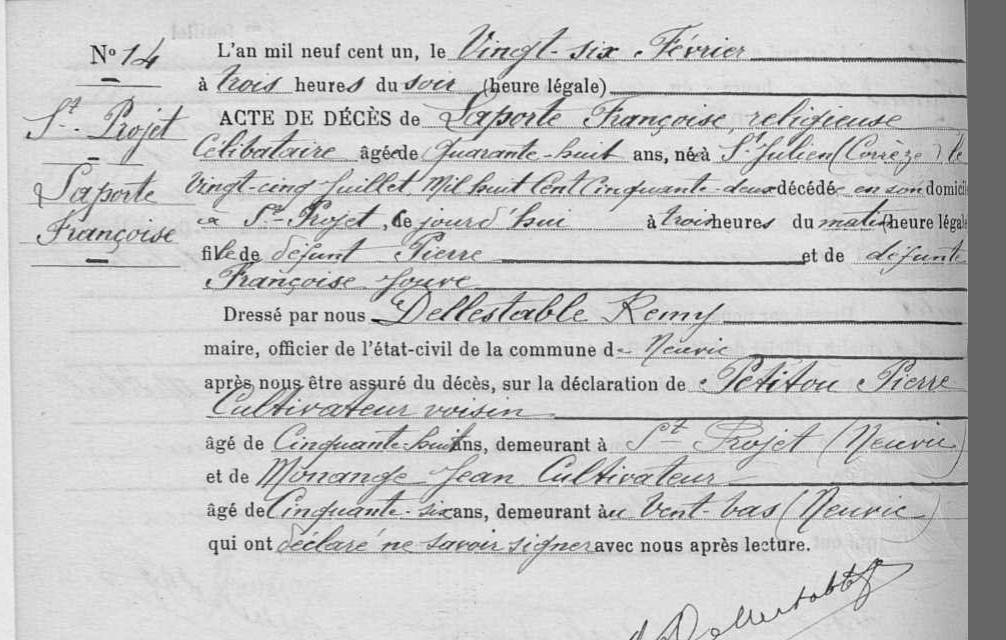 N° 14
St. Projet
Laporte
Françoise
L'an mil neuf cent un, le Vingt-six Février
à trois heures du soir (heure légale)
ACTE DE DÉCÈS de Laporte Françoise, religieuse
Célibataire âgée de Quarante-huit ans, née à St Julien (Corrèze) le
Vingt-cinq Juillet Mil huit Cent Cinquante-deux décédée en son domicil
à St-Projet, ce jourd'hui à trois heures du matin (heure légale
fille de défunt Pierre et de défunte
Françoise Jouve
Dressé par nous Dellestable Remy
maire, officier de l'état-civil de la commune de Neuvic
après nous être assuré du décès, sur la déclaration de Petitou Pierre
Cultivateur voisin
âgé de Cinquante-huit ans, demeurant à St Projet (Neuvic)
et de Monange Jean Cultivateur
âgé de Cinquante-six ans, demeurant au Vent-bas (Neuvic)
qui ont déclaré ne savoir signer avec nous après lecture.
Dellestable